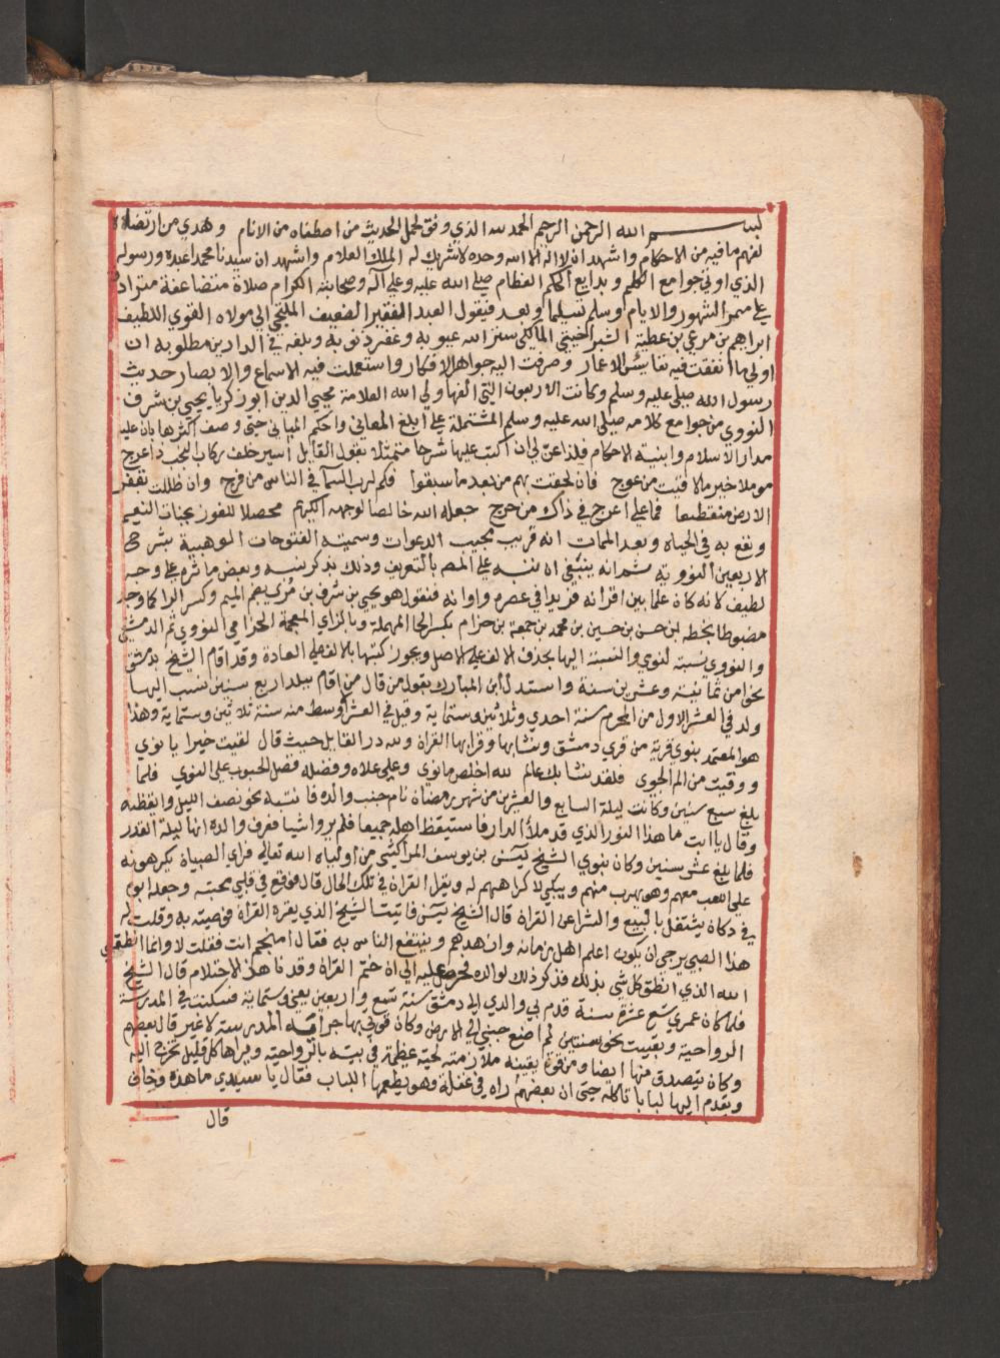 بسم الله الرحمن الرحيم الحمد لله الذي وفق لحمل الحديث من اصطفاه من الانام وهدي من ارتضاه
لفهم ما فيه من الاحكام واشهد ان لا اله الا الله وحده لا شريك له الملك العلام واشهد ان سيدنا محمدا عبده ورسوله
الذي اوتي جوامع الكلم وبدايع الحكم العظام صلي الله عليه وعلي آله وصحابته الكرام صلاة متضاعفة متراد
علي ممر الشهور والايام وسلم تسليما وبعد فيقول العبد الفقير الضعيف الملتجي الي مولاه القوي اللطيف
ابراهيم بن مرعي بن عطية الشبراخيتي المالكي ستر الله عيوبه وغفر ذنوبه وبلغه في الدارين مطلوبه ان
اولي ما انفقت فيه نفايس الاعمار وصرفت اليه جواهر الافكار واستعملت فيه الاسماع والابصار حديث
رسول الله صلي عليه وسلم وكانت الاربعون التي الفها ولي الله العلامة محيي الدين ابو زكريا يحيي بن شرف
النووي من جوامع كلامه صلي الله عليه وسلم المشتملة علي ابلغ المعاني واحكم المباني حتي وصف اكثرها بان عليه
مدار الاسلام وابنية الاحكام فلذا عن لي ان اكتب عليها شرحا متمثلا بقول القايل اسير خلف ركاب النجب ذا عرج
موملا خير ما لاقيت من عوج فان لحقت بهم من بعد ما سبقوا فكم لرب السما في الناس من فرج وان ظللت بقفر
الارض منقطعا فما علي اعرج في ذاك من حرج جعله الله خالصا لوجهه الكريم محصلا للفوز بجنات النعيم
ونفع به في الحياه وبعد الممات انه قريب مجيب الدعوات وسميته الفتوحات الوهبية بشرح
الاربعين النووية ثم انه ينبغي ان ننبه علي المص بالتعريف وذلك بذكر نسبه وبعض ماثره علي وجه
لطيف لانه كان علما بين اقرانه فريدا في عصره واوانه فنقول هو يحيي بن شرف بن مري بضم الميم وكسر الرا كما وجد
مضبوطا بخطه ابن حسن بن حسين بن محمد بن جمعة بن حزام بكسر الحا المهملة وبالزاي المعجمة الحزامي النووي ثم الدمشقي
والنووي نسبة لنوي والنسبة اليها بحذف الالف علي الاصل ويجوز كتبها بالالف علي العادة وقد اقام الشيخ بدمشق
نحوا من ثمانية وعشرين سنة واستدل ابن المبارك بقوله من قال من اقام ببلد اربع سنين نسب اليها
ولد في العشر الاول من المحرم سنة احدي وثلاثين وستماية وقيل في العشر الاوسط منه سنة ثلاثين وستماية وهذا
هو المعتمد بنوي قرية من قري دمشق ونشا بها وقرا بها القران ولله در القايل حيث قال لقيت خيرا يا نوي
ووقيت من الم الجوي فلقد نشا بك عالم لله اخلص ما نوي وعلي علاه وفضله فضل الحبوب علي النوي فلما
بلغ سبع سنين وكانت ليلة السابع والعشرين من شهر رمضان نام جنب والده فانتبه نحو نصف الليل وايقظه
وقال يا ابت ما هذا النور الذي قد ملأ الدار فاستيقظ اهله جميعا فلم يروا شيا فعرف والده انها ليلة القدر
فلما بلغ عشر سنين وكان بنوي الشيخ يسن بن يوسف المراكشي من اولياء الله تعالي فراي الصبيان يكرهونه
علي اللعب معهم وهو يهرب منهم ويبكي لاكراههم له ويقرا القران في تلك الحال قال فوقع في قلبي محبته وجعله ابوه
في دكان يشتغل بالبيع والشرا عن القران قال الشيخ يسن فاتيت الشيخ الذي يقره القران فوصيته به وقلت له
هذا الصبي يرجي ان يكون اعلم اهل زمانه وازهدهم وينتفع الناس به فقال امنجم انت فقلت لا وانما انطقني
الله الذي انطق كل شي بذلك فذكر ذلك لوالده فحرص عليه الي ان ختم القران وقد ناهز الاحتلام قال الشيخ
فلما كان عمري تسع عشرة سنة قدم بي والدي الي دمشق سنة تسع واربعين يعني وستماية فسكنت في المدرسة
الرواحية وبقيت نحو سنتين لم اضع جنبي الي الارض وكان قوتي بها جراية المدرسة لا غير قال بعضهم
وكان يتصدق منها ايضا ومن قوة يقينه ملازمته لحية عظيمة في بيته بالرواحية ويراها كل قليل تخرج اليه
ويقدم اليها لبابا تاكله حتي ان بعضهم راه في غفلة وهو يطعمها اللباب فقال يا سيدي ما هذه وخاف
قال